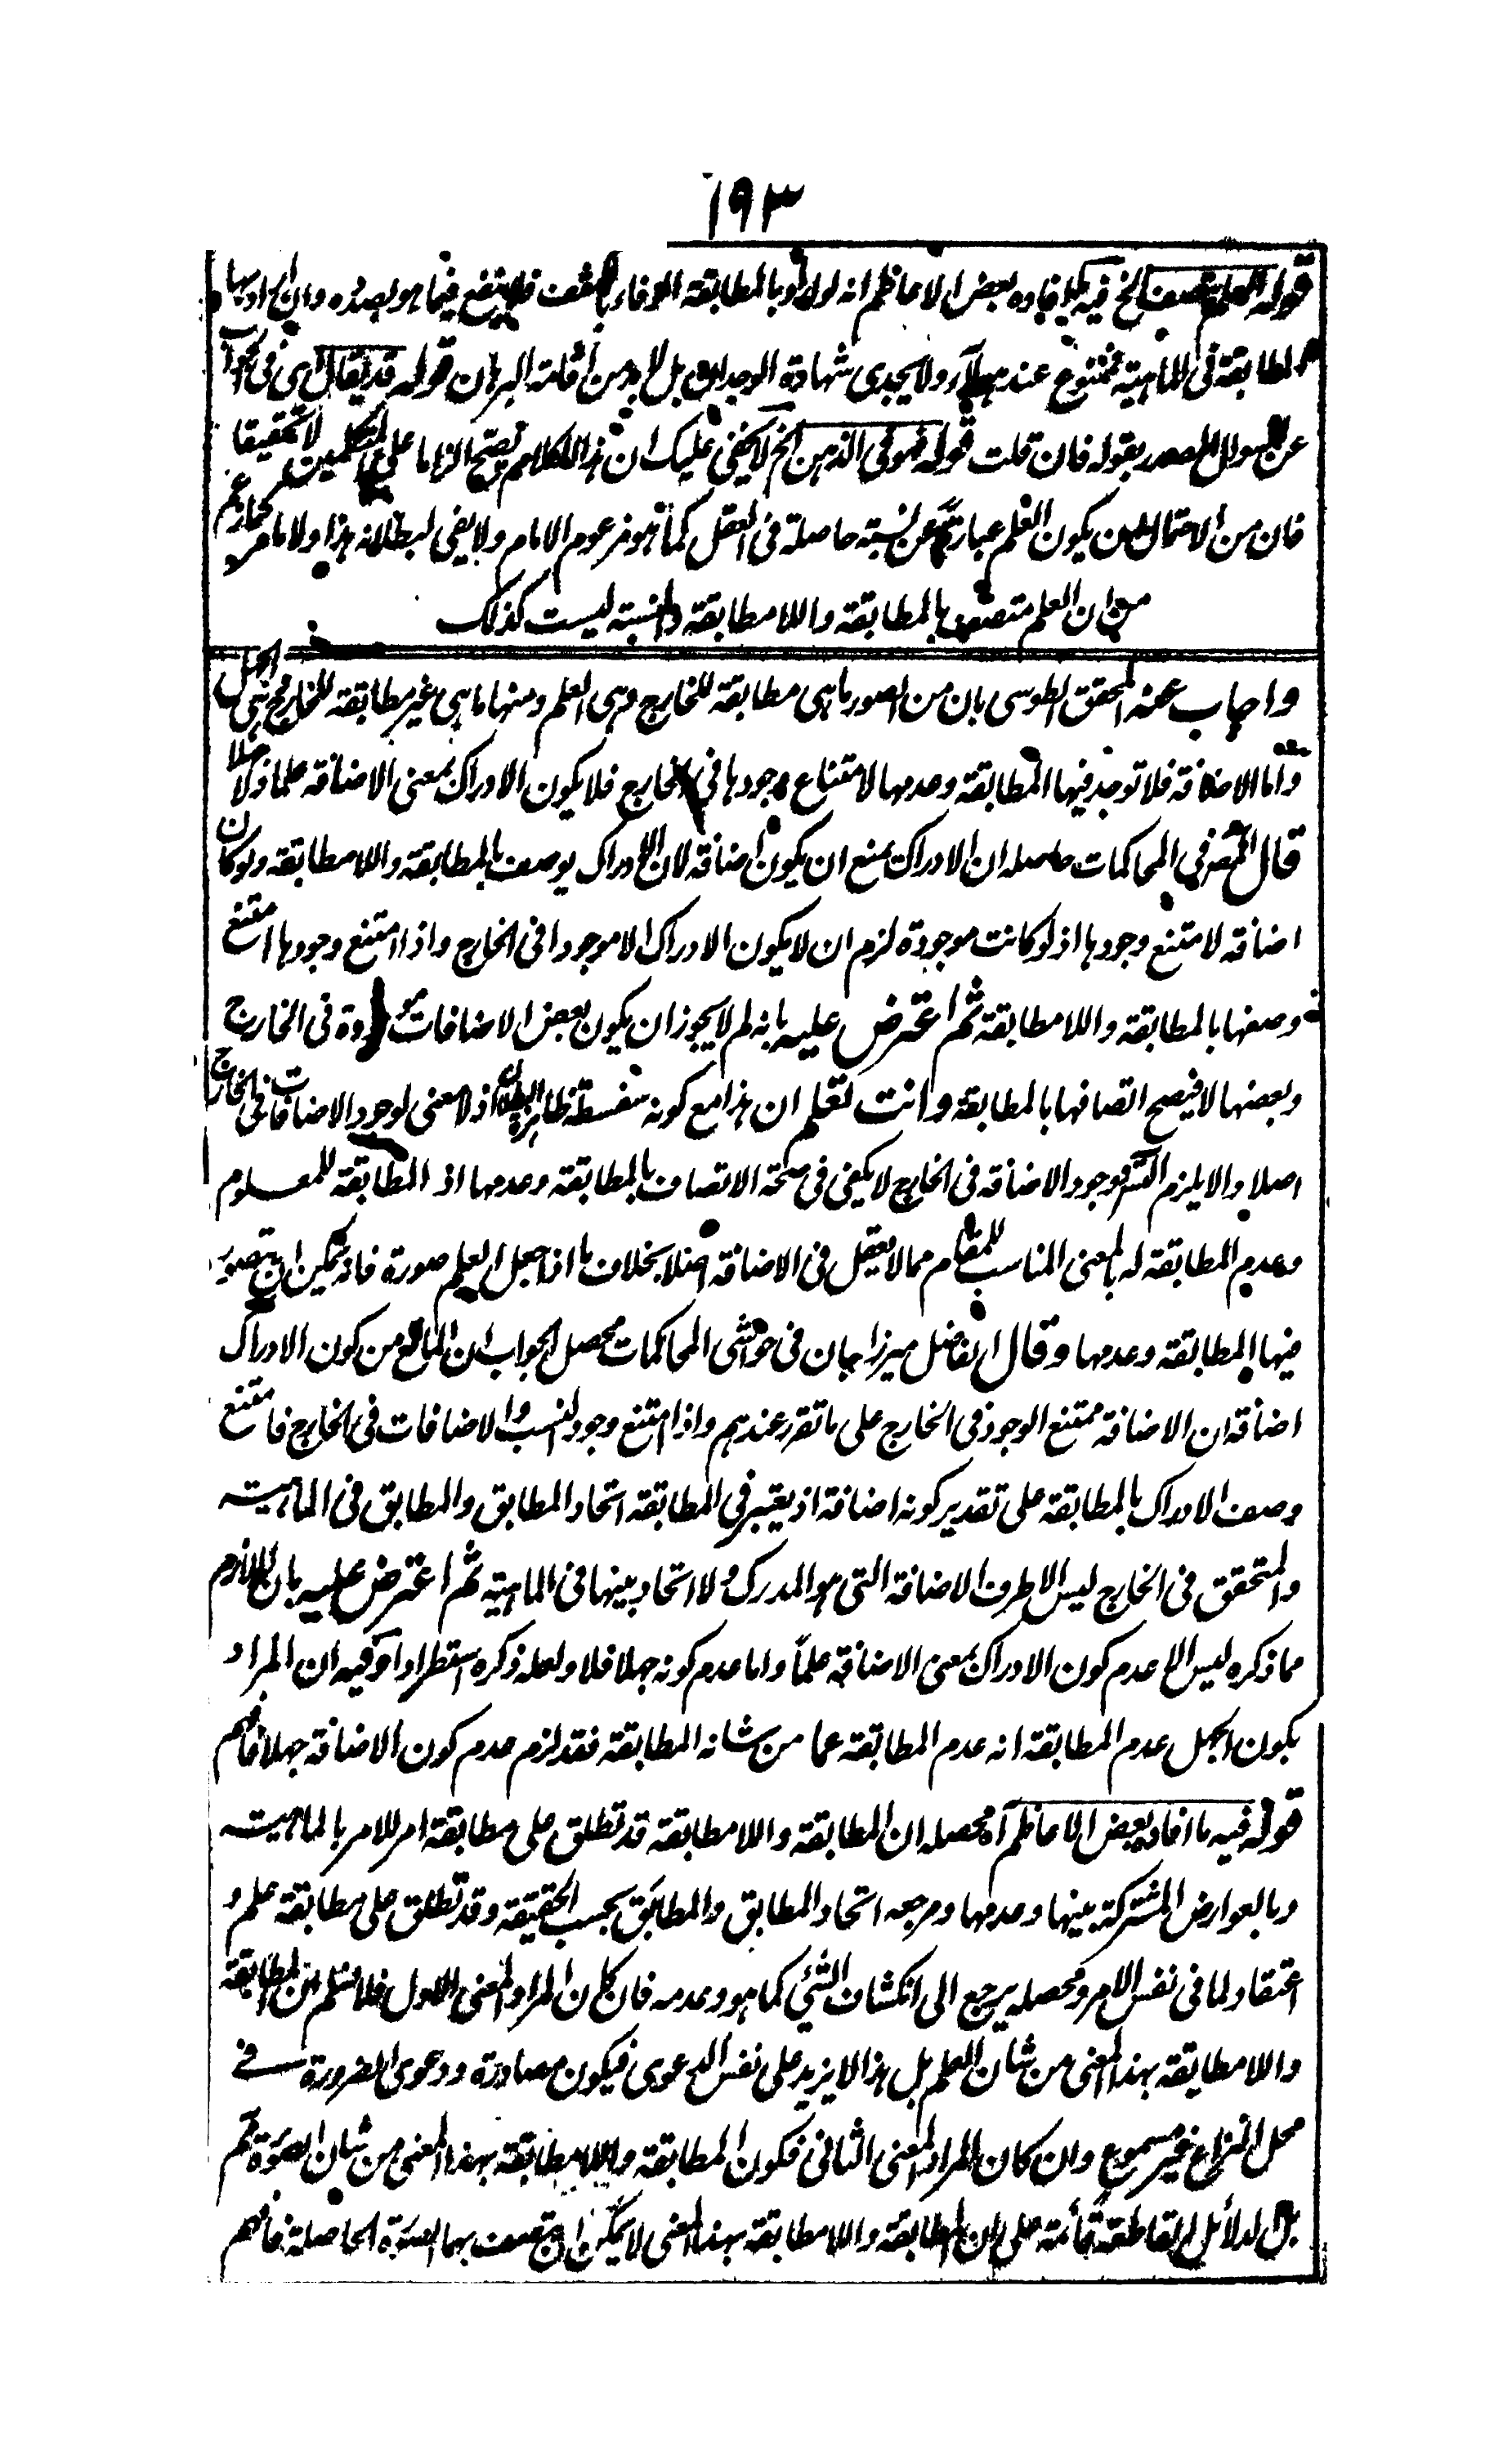 ١٩٣
قوله العلم يتصف الخ فيه ما افاده بعض الاعاظم انه لو اراد بالمطابقة الوفاء بالكشف فلا ينفع فيما هو بصدده وان اراد بها
المطابقة فى الماهية فممنوع عند هؤلاء ولا يجدى شهادة الوجدان بل لا بد من اقامة البرهان قوله قد يقال اى فى الجواب
عن السوال المصدر بقوله فان قلت قوله فهو فى الذهن الخ لا يخفى عليك ان هذا الكلام يصح الزاما على المتكلمين لا تحقيقا
فان من الاحتمال ان يكون العلم عبارة عن نسبة حاصلة فى العقل كما هو مزعوم الامام ولا يفى لبطلانه هذا ولا ما مر
من ان العلم متصف بالمطابقة واللا مطابقة والنسبة ليست كذلك
واجاب عنه المحقق الطوسى بان من الصور ما هى مطابقة للخارج وهى العلم ومنها ما هى غير مطابقة للخارج وهى الجهل
واما الاضافة فلا توجد فيها المطابقة وعدمها لامتناع وجودها فى الخارج فلا يكون الادراك بمعنى الاضافة علما ولا جهلا
قال فى المحاكمات حاصله ان الادراك يمنع ان يكون اضافة لان الادراك يوصف بالمطابقة واللا مطابقة ولو كان
اضافة لامتنع وجودها اذ لو كانت موجودة لزم ان لا يكون الادراك الا موجودا فى الخارج واذا امتنع وجودها امتنع
وصفها بالمطابقة واللا مطابقة ثم اعترض عليه بانه لم لا يجوز ان يكون بعض الاضافات موجودة فى الخارج
وبعضها لا فيصح اتصافها بالمطابقة وانت تعلم ان هذا مع كونه سفسطة ظاهرة البطلان اذ لا معنى لوجود الاضافات فى الخارج
اصلا والا يلزم التس فوجود الاضافة فى الخارج لا يكفى فى صحة الاتصاف بالمطابقة وعدمها اذ المطابقة للمعلوم
وعدم المطابقة له بالمعنى المناسب للمقام مما لا يعقل فى الاضافة اصلا بخلاف ما اذا جعل العلم صورة فانه يمكن ان يتصور
فيها المطابقة وعدمها وقال الفاضل ميرزا جان فى حواشى المحاكمات محصل الجواب ان المانع من كون الادراك
اضافة ان الاضافة ممتنع الوجود فى الخارج على ما تقرر عندهم واذا امتنع وجود النسب والاضافات فى الخارج فامتنع
وصف الادراك بالمطابقة على تقدير كونه اضافة اذ يعتبر فى المطابقة اتحاد المطابق والمطابق فى الماهية
والمتحقق فى الخارج ليس الا طرف الاضافة التى هو المدرك ولا اتحاد بينها فى الماهية ثم اعترض عليه بان اللازم
مما ذكره ليس الا عدم كون الادراك بمعنى الاضافة علماً واما عدم كونه جهلا فلا ولعله ذكره استطرادا وفيه ان المراد
بكون الجهل عدم المطابقة انه عدم المطابقة عما من شانه المطابقة فقد لزم عدم كون الاضافة جهلا فافهم
قوله فيه ما افاده بعض الاعاظم آه محصله ان المطابقة واللا مطابقة قد تطلق على مطابقة امر للامر بالماهية
وبالعوارض المشتركة بينها وعدمها ومرجعه اتحاد المطابق والمطابق بحسب الحقيقة وقد تطلق على مطابقة علم و
اعتقاد لما فى نفس الامر ومحصله يرجع الى انكشاف الشئ كما هو وعدمه فان كان المراد المعنى الاول فلا نسلم ان المطابقة
واللا مطابقة بهذا المعنى من شان العلم بل هذا لا يزيد على نفس الدعوى فيكون مصادرة ودعوى الضرورة فى
محل النزاع غير مسموع وان كان المراد المعنى الثانى فكون المطابقة واللا مطابقة بهذا المعنى من شان الصورة ثم
بل الدلائل القاطعة قائمة على ان المطابقة واللا مطابقة بهذا المعنى لا يمكن ان يتصف بهما الصورة الحاصلة فافهم